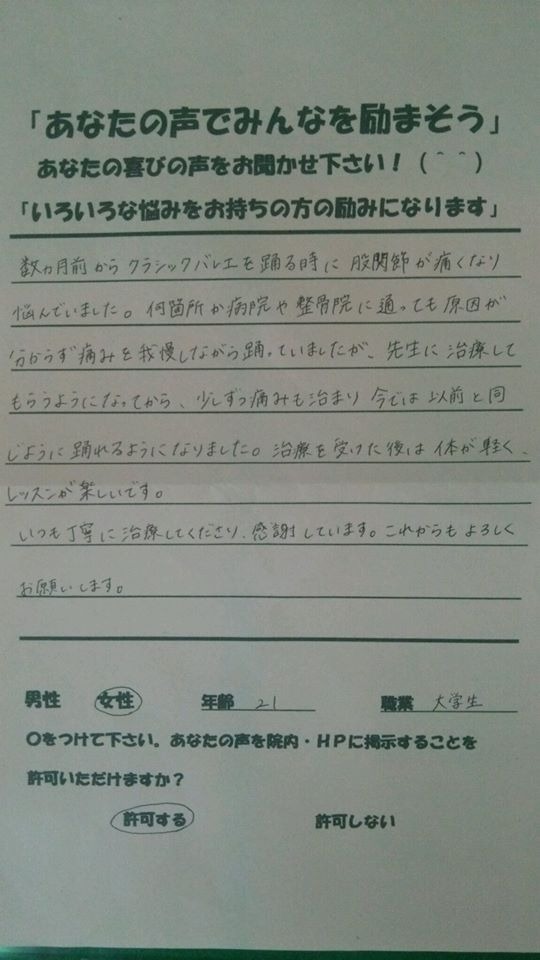 「あなたの声でみんなを励まそう」
あなたの喜びの声をお聞かせ下さい！（＾＾）
「いろいろな悩みをお持ちの方の励みになります」
数カ月前からクラシックバレエを踊る時に股関節が痛くなり
悩んでいました。何箇所か病院や整骨院に通っても原因が
分からず痛みを我慢しながら踊っていましたが、先生に治療して
もらうようになってから、少しずつ痛みも治まり今では以前と同
じように踊れるようになりました。治療を受けた後は体が軽く、
レッスンが楽しいです。
いつも丁寧に治療してくださり、感謝しています。これからもよろしく
お願いします。
男性 女性 年齢 21 職業 大学生
〇をつけて下さい。あなたの声を院内・ＨＰに掲示することを
許可いただけますか？
許可する 許可しない